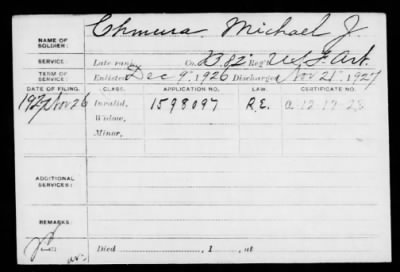 NAME OF SOLDIER: Chmura, Michael J.
SERVICE: Late rank, Co. B. 82 Reg't U.S.F. Art.
TERM OF SERVICE: Enlisted Dec 9, 1926 Discharged Nov 21, 1927
DATE OF FILING. CLASS. APPLICATION NO. LAW. CERTIFICATE NO.
1927 Nov 26 Invalid, 1598097 R.E. a. 12-17-28
Widow,
Minor,
ADDITIONAL SERVICES:
REMARKS:
Died , 1 , at